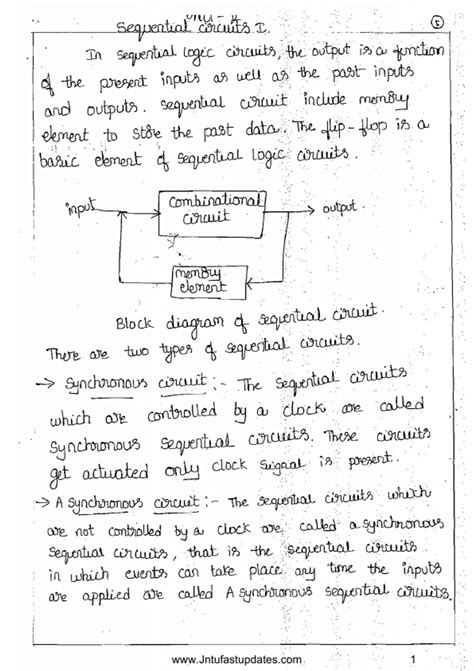 UNIT - II
Sequential circuits I.
In sequential logic circuits, the output is a function
of the present inputs as well as the past inputs
and outputs. sequential circuit include memory
element to store the past data. The flip-flop is a
basic element of sequential logic circuits.
input
Combinational
circuit
output
memory
element
Block diagram of sequential circuit.
There are two types of sequential circuits.
→ Synchronous circuit :- The sequential circuits
which are controlled by a clock are called
synchronous sequential circuits. These circuits
get actuated only clock signal is present.
→ A synchronous circuit :- The sequential circuits which
are not controlled by a clock are called a synchronous
sequential circuits, that is the sequential circuits
in which events can take place any time the inputs
are applied are called A synchronous sequential circuits.
www.Jntufastupdates.com 1